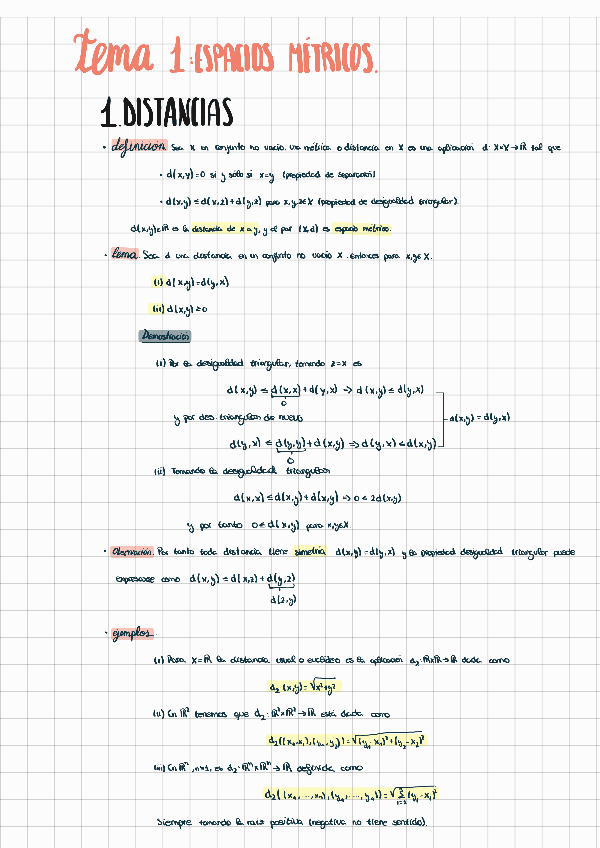 tema 1: ESPACIOS MÉTRICOS.
1. DISTANCIAS
• definición. Sea X un conjunto no vacío. Una métrica o distancia en X es una aplicación d: X×X→ℝ tal que
• d(x,y)=0 si y sólo si x=y (propiedad de separación)
• d(x,y) ≤ d(x,z)+d(y,z) para x,y,z∈X (propiedad de desigualdad triangular).
d(x,y)∈ℝ es la distancia de x a y, y el par (X,d) es espacio métrico.
• lema. Sea d una distancia en un conjunto no vacío X. Entonces para x,y∈X.
(i) d(x,y)=d(y,x)
(ii) d(x,y) ≥0
Demostración
(i) Por la desigualdad triangular, tomando z=x es
d(x,y) ≤ d(x,x) + d(y,x) => d(x,y) ≤ d(y,x)
0
y por des. triangular de nuevo
d(x,y) = d(y,x)
d(y,x) ≤ d(y,y) + d(x,y) => d(y,x) ≤ d(x,y)
0
(ii) Tomando la desigualdad triangular
d(x,x) ≤ d(x,y) + d(x,y) => 0 ≤ 2d(x,y)
y por tanto 0 ≤ d(x,y) para x,y∈X.
• Observación. Por tanto toda distancia tiene simetría d(x,y) = d(y,x) y la propiedad desigualdad triangular puede
expresarse como d(x,y) ≤ d(x,z) + d(y,z)
d(z,y)
• ejemplos.
(i) Para X=ℝ la distancia usual o euclídea es la aplicación d₂: ℝ×ℝ→ℝ dada como
d₂(x,y) = √x²+y²
(ii) En ℝ² tenemos que d₂: ℝ²×ℝ²→ℝ está dada como
d₂((x₁,x₂),(y₁,y₂)) = √(y₁-x₁)²+(y₂-x₂)²
(iii) En ℝⁿ, n≥1, es d₂: ℝⁿ×ℝⁿ→ℝ definida como
d₂((x₁,...,xₙ),(y₁,...,yₙ)) = √Σⁿᵢ₌₁(yᵢ-xᵢ)²
Siempre tomando la raíz positiva (negativa no tiene sentido).